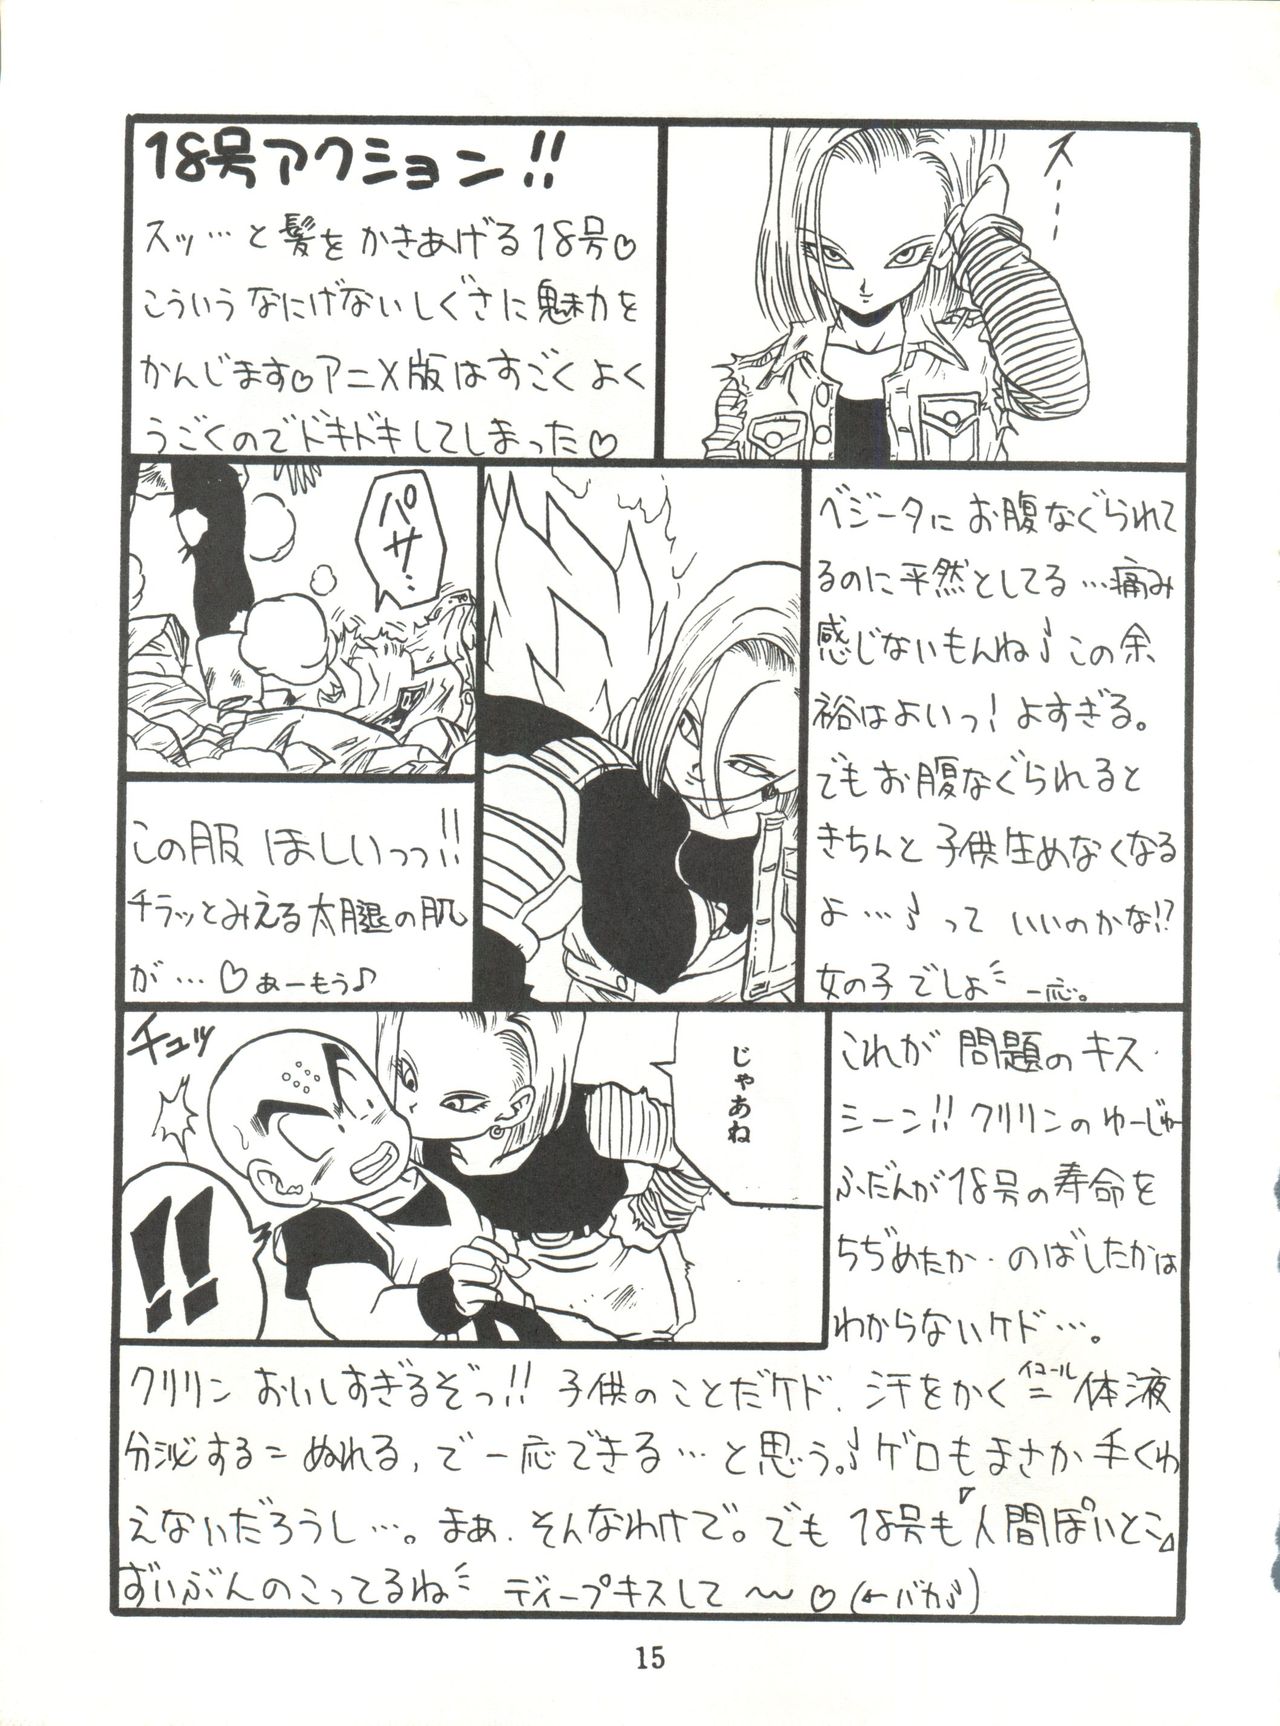 18号アクション!!
スッ…と髪をかきあげる18号♡
こういうなにげないしぐさに魅力を
かんじます♡アニメ版はすごくよく
うごくのでドキドキしてしまった♡
スーー
パサ…
この服 ほしいっっ!!
チラッとみえる太腿の肌
が…♡ぁーもう♪
ベジータにお腹なぐられて
るのに平然としてる…痛み
感じないもんね♪この余
裕はよいっ!よすぎる。
でもお腹なぐられると
きちんと子供生めなくなる
よ…♪って いいのかな!?
女の子でしょ 一応。
チュッ
じゃあね
!!
これが問題のキス・
シーン!!クリリンのゆーじゅー
ふだんが18号の寿命を
ちぢめたか・のばしたかは
わからないケド…。
クリリン おいしすぎるぞっ!! 子供のことだケド、汗をかく=イコール 体液
分泌する=ぬれる、で一応できる…と思う。♪ゲロもまさか手くわ
えないだろうし…。まぁ、そんなわけで。でも18号も『人間ぽいとこ』
ずいぶんのこってるね ディープキスして〜〜♡(←バカ♪)
15